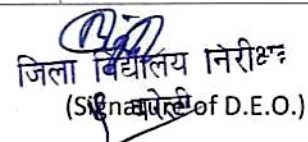 जिला विद्यालय निरीक्षक
(Signature of D.E.O.)